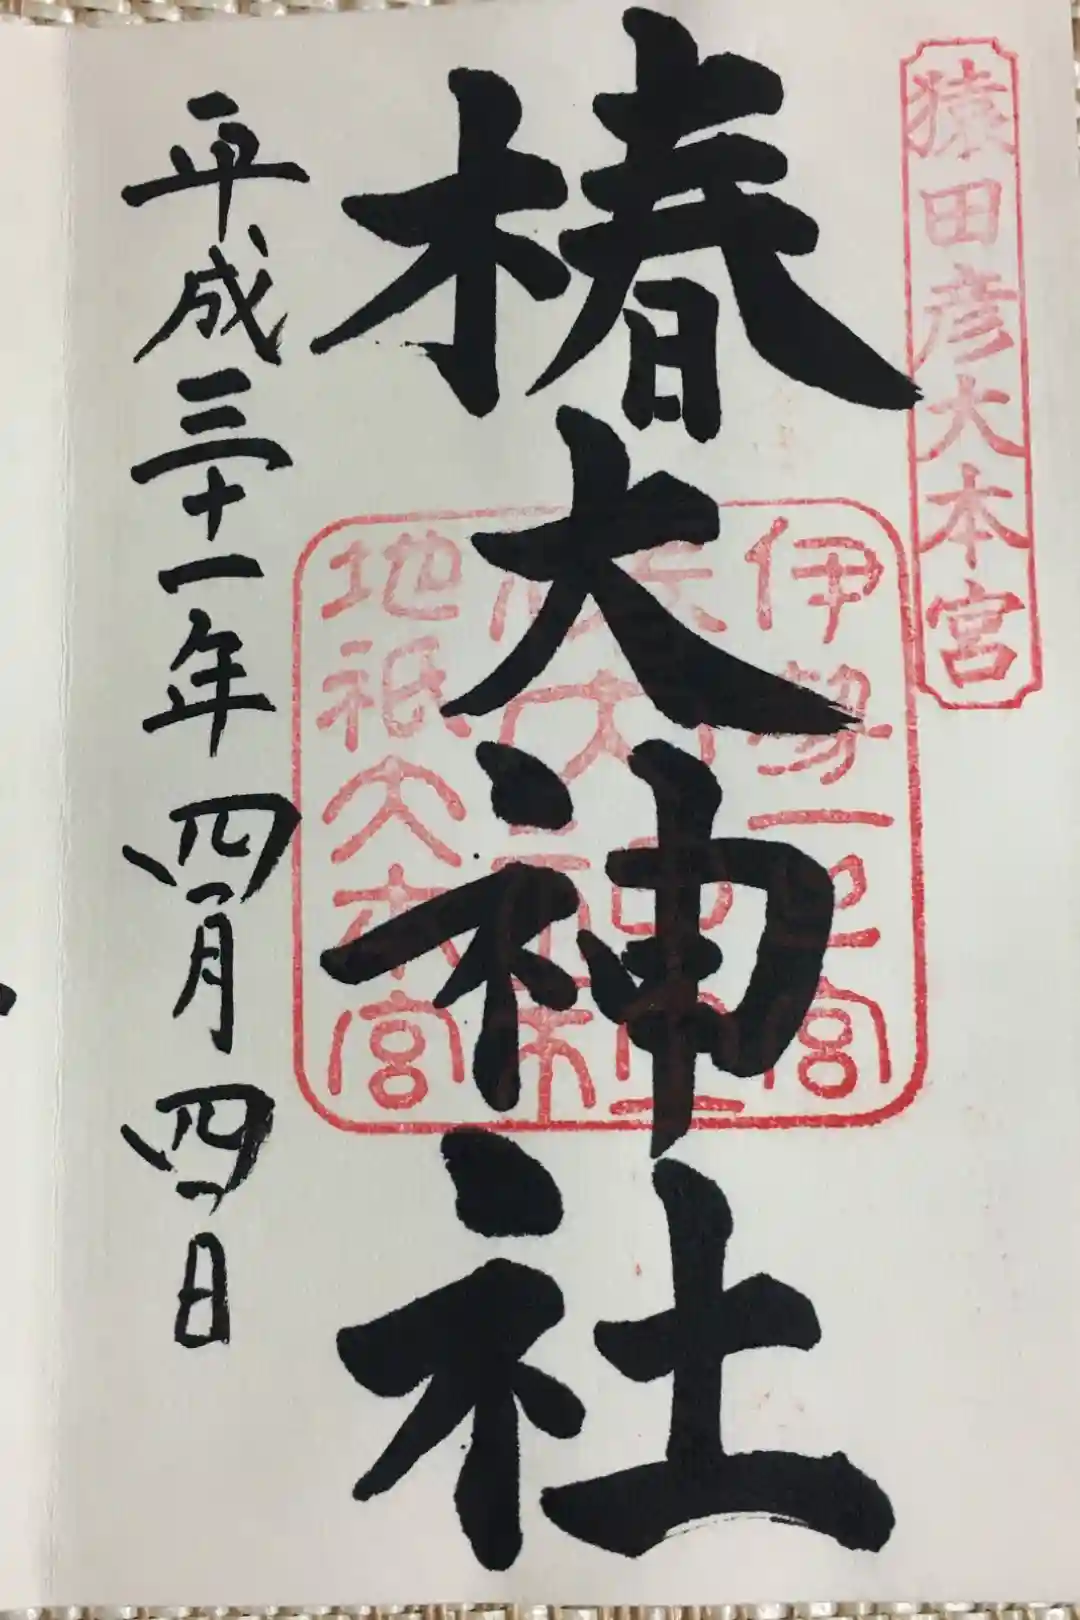 猿田彦大本宮
椿大神社
伊勢一之宮
椿大神社
地祇大本宮
平成三十一年四月四日